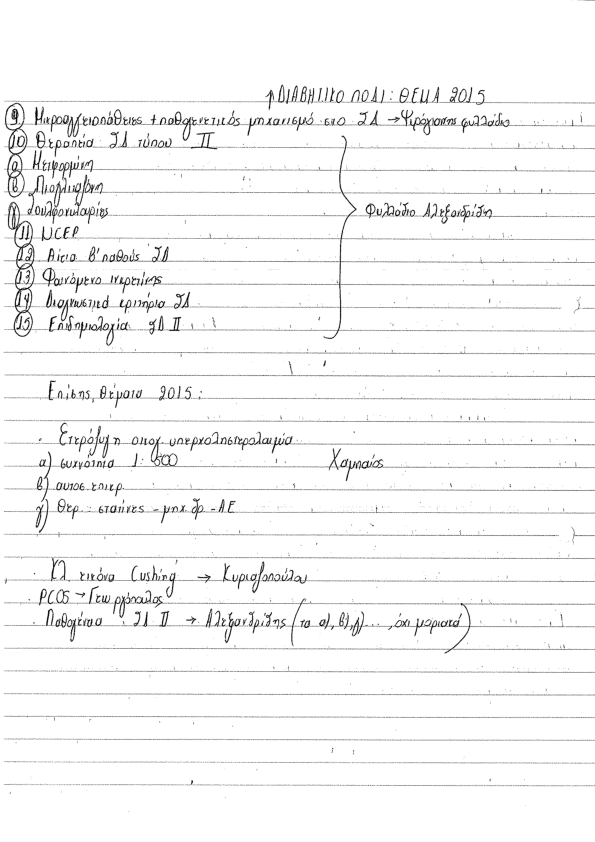 ↑ΔΙΑΒΗΤΙΚΟ ΠΟΔΙ: ΘΕΜΑ 2015
⑨ Μικροαγγειοπάθειες + παθογενετικός μηχανισμό στο ΣΔ → Ψυρόγιαννης φυλλάδιο
⑩ Θεραπεία ΣΔ τύπου II
ⓐ Μετφορμίνη
ⓑ Πιογλιταζόνη
ⓨ Σουλφονυλουρίες
Φυλλάδιο Αλεξανδρίδη
⑪ NCEP
⑫ Αίτια β'παθούς ΣΔ
⑬ Φαινόμενο ινκρετίνης
⑭ Διαγνωστικά κριτήρια ΣΔ
⑮ Επιδημιολογία ΣΔ II
Επίσης, θέματα 2015:
· Ετερόζυγη οικογ. υπερχοληστερολαιμία
α) συχνότητα 1:500 Χαμπαίος
β) αυτοσ. επικρ.
γ) Θερ.: στατίνες - μηχ. δρ. - ΑΕ
· Κλ. εικόνα Cushing → Κυριαζοπούλου
· PCOS → Γεωργόπουλος
· Παθογένεια ΣΔ II → Αλεξανδρίδης (τα α), β), γ)..., όχι μοριακά)